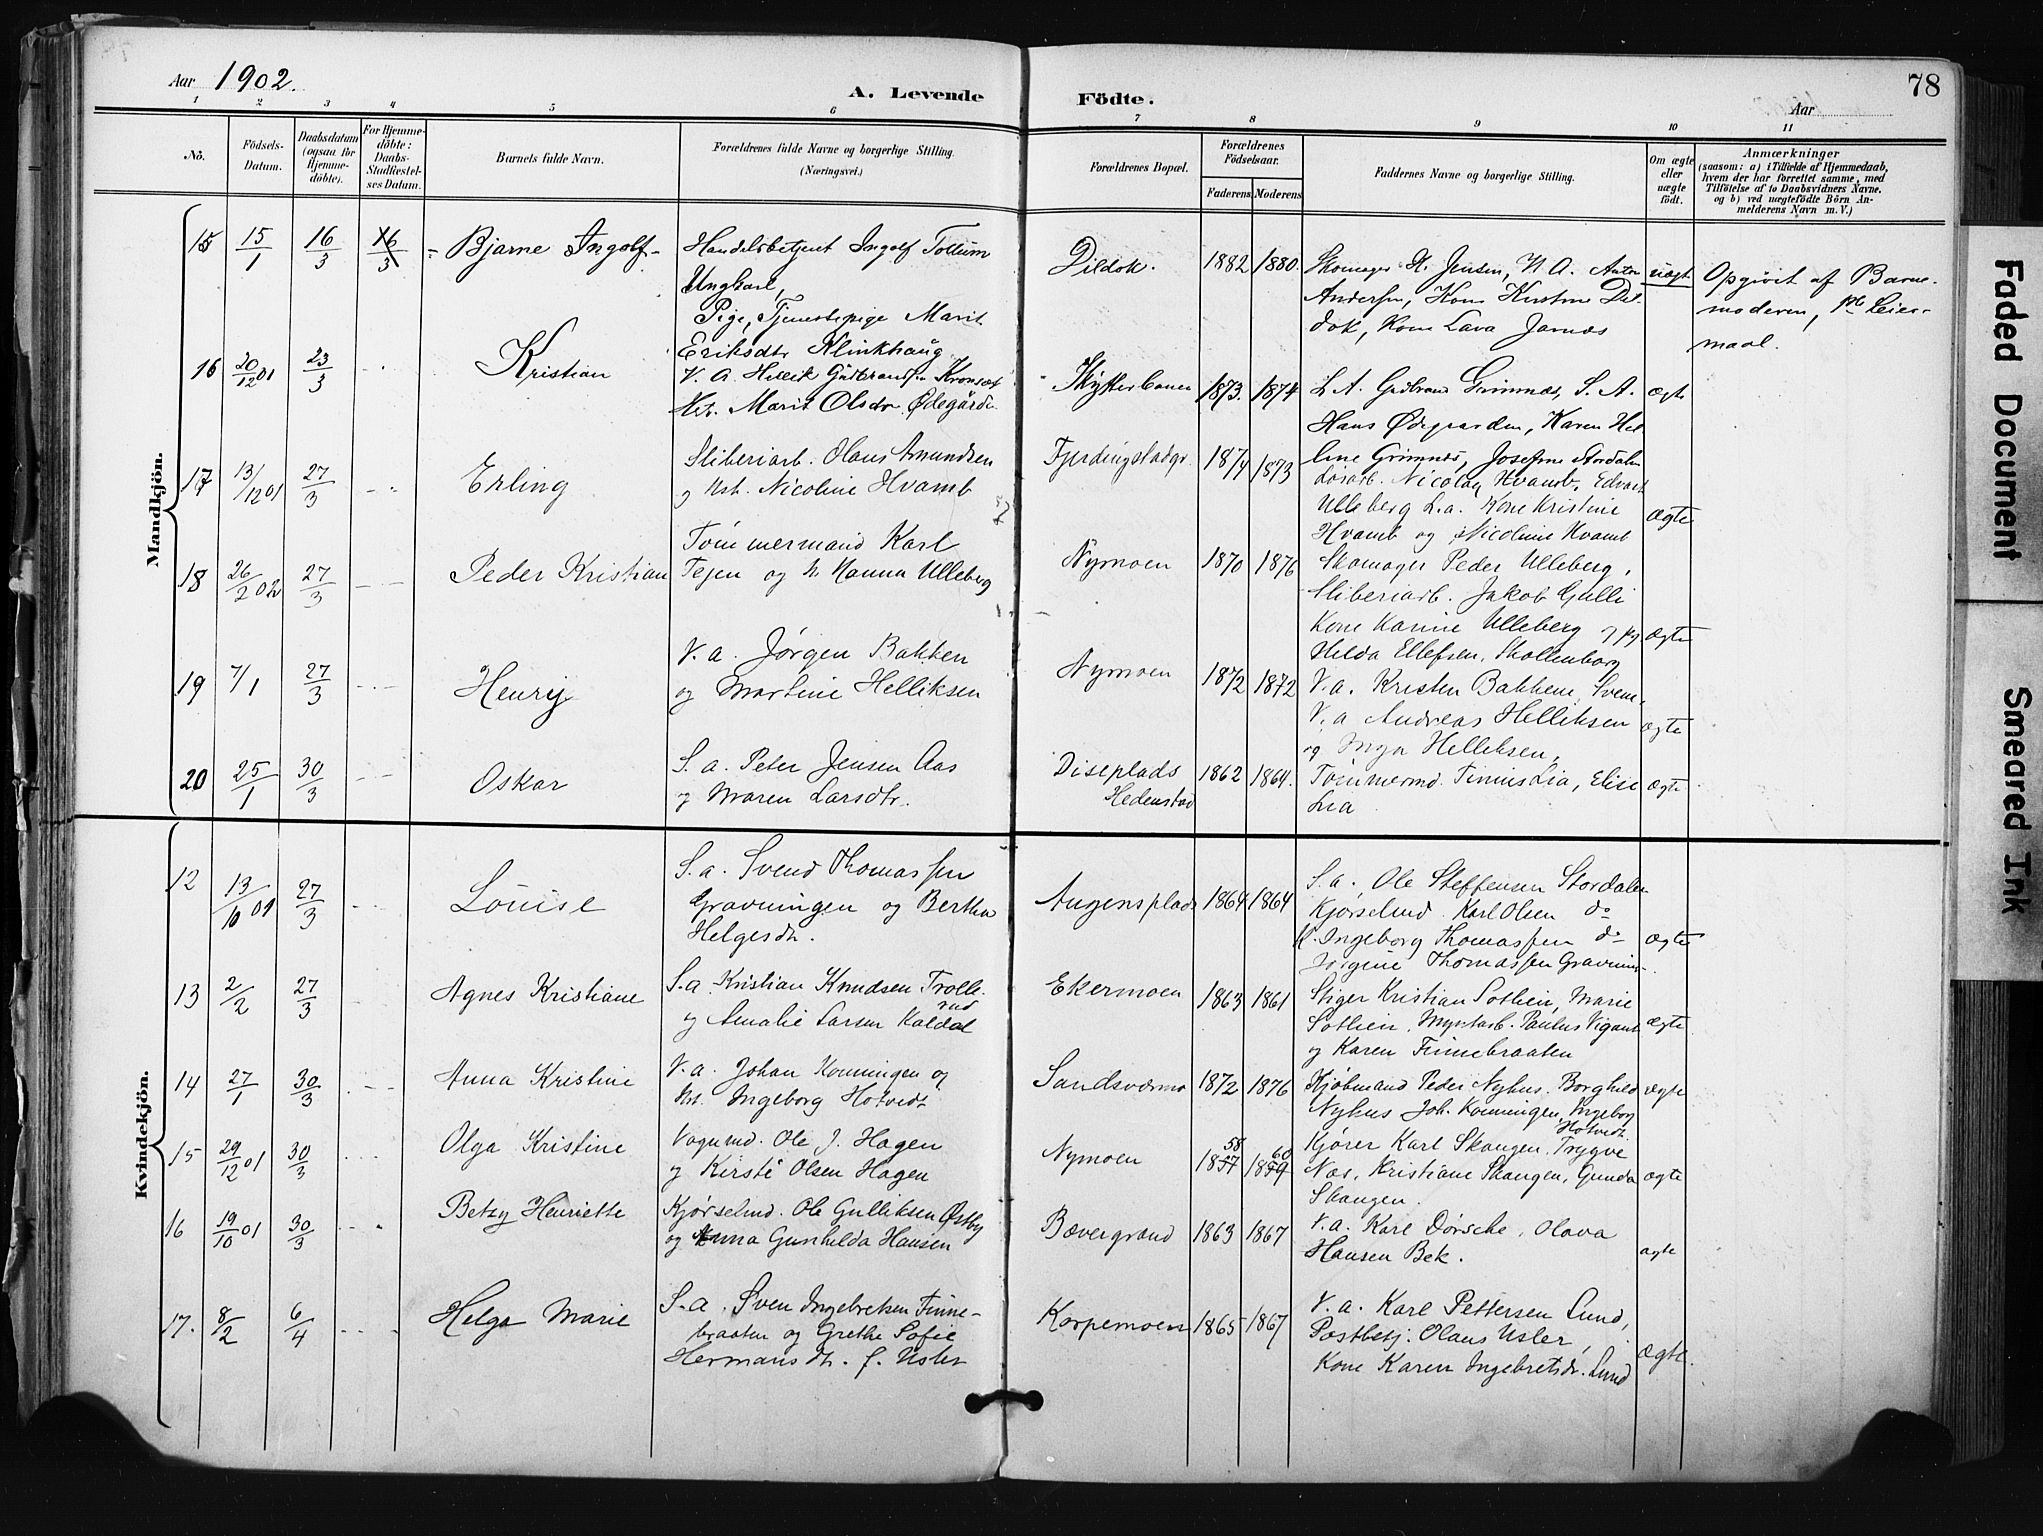 Aar 1902.
A. Levende Födte.
78
Aar
1 2 3 4 5 6 7 8 9 10 11
No.
Födsels-Datum.
Daabsdatum (ogsaa for Hjemme-döbte).
For Hjemme-döbte: Daabs-Stadfæstel-ses Datum.
Barnets fulde Navn.
Forældrenes fulde Navne og borgerlige Stilling. (Næringsvei.)
Forældrenes Bopæl.
Forældrenes Födselsaar.
Faderens Moderens
Faddernes Navne og borgerlige Stilling.
Om ægte eller uægte födt.
Anmærkninger
(saasom: a) i Tilfælde af Hjemmedaab,
hvem der har forrettet samme, med
Tilföielse af to Daabsvidners Navne,
og b) ved uægtefödte Börn An-
melderens Navn m. V.)
Mandkjön.
15 15/1 16/3 16/3 Bjarne Ingolf
Handelsbetjent Ingolf Tollum
Ungkarl,
Pige, Tjenestepige Marit
Eriksdtr Klinkhaug
Dildok. 1882 1880.
Skomager H. Jensen, N. A. Anton
Andersen, Kone Kirstine Dil
dok, Kone Lava Jarnæs
uægt
Opgivet af Barne-
moderen, 1ste Leier-
maal.
16 20/12 01 23/3 Kristian
V. A. Hellik Gudbrandsen Kronset
Hst. Marit Olsdtr. Ødegården
1873. 1874
L. A. Gudbrand Grimnæs, S. A.
Hans Ødegaarden, Karen Hel
line Grimnes, Josefine Stordalen
ægte
17 13/12 01 27/3 Erling
Sliberiarb. Olaus Amundsen
og Hst. Nicoline Hvamb
Fjerdingstadgr. 1874 1873
Løsarb. Nicolay Hvamb, Edvart
Ulleberg L.a. Kone Kristine
Hvamb og Nicoline Hvamb
ægte
18 26/2 02 27/3 Peder Kristian
Tømmermand Karl
Tejen og h. Hanna Ulleberg
Nymoen 1870 1876
Skomager Peder Ulleberg,
Sliberiarb. Jakob Gulli
Kone Karine Ulleberg og pg
Hilda Ellefsen, Skollenborg
ægte
19 7/1 27/3 Henry
V. a. Jørgen Bakken
og Martine Helliksen
Nymoen 1872 1872
V. a. Kristen Bakkene, Svene,
V. a Andreas Helliksen
og Inga Helliksen,
ægte
20 25/1 30/3 Oskar
S. a. Peter Jensen Aas
og Maren Larsdtr.
Diseplads
Hedenstad
1862 1864.
Tømmermd. Finnus Lia, Elise
Lia
ægte
Kvindekjön.
12 13/10 01 27/3 Louise
S. a. Svend Thomassen
Gravningen og Berthe
Helgesdtr.
Augensplads 1864 1864
S. a. Ole Steffensen Stordalen
Kjørselmd. Karl Olsen do
K. Ingeborg Thomassen do
Jørgine Thomassen Gravnin-
ægte
13 2/2 27/3 Agnes Kristiane
S. a. Kristian Knudsen Trolle-
rud
og Amalie Larsen Koldal
Ekermoen 1863 1861
Stiger Kristian Sothien, Marie
Sothien, Myntarb. Paulus Vigant
og Karen Finnebraaten
ægte
14 27/1 30/3 Anna Kristine
V. a. Johan Komningen og
Hst. Ingeborg Hotvedt
Sandsværmo 1872 1876
Kjøbmand Peder Nyhus. Borghild
Nyhus Joh. Komningen, Ingeborg
Hotvedt.
ægte
15 29/12 01 30/3 Olga Kristine
Vognmd. Ole J. Hagen
og Kirsti Olsen Hagen
Nymoen
58 60
1857 1859
Kjører Karl Skaugen, Trygve
Næs, Kristiane Skaugen, Gunda
Skaugen.
ægte
16 19/10 01 30/3 Betzy Henriette
Kjørselmd. Ole Gulliksen Østby
og Anna Gunhilda Hansen
Bævergrænd 1863 1867
V. a. Karl Dørsche, Olava
Hansen Bek.
ægte
17. 8/2 6/4 Helga Marie
S. a. Sven Ingebretsen Finne-
braaten og Grethe Sofie
Hermansdtr. f. Usler
Korpemoen 1865 1867
V. a. Karl Pettersen Lund,
Postbetj. Olaus Usler,
Kone Karen Ingebretsdr. Lund
ægte.
Faded Document
Smeared Ink